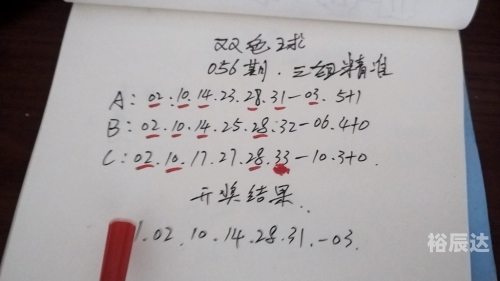 双色球
056期.三组精准
A:02.10.14.23.28.31-03.5+1
B:02.10.14.25.28.32-06.4+0
C:02.10.17.27.28.33-10.3+0.
开奖结果.
1.02.10.14.28.31.-03.
裕辰达